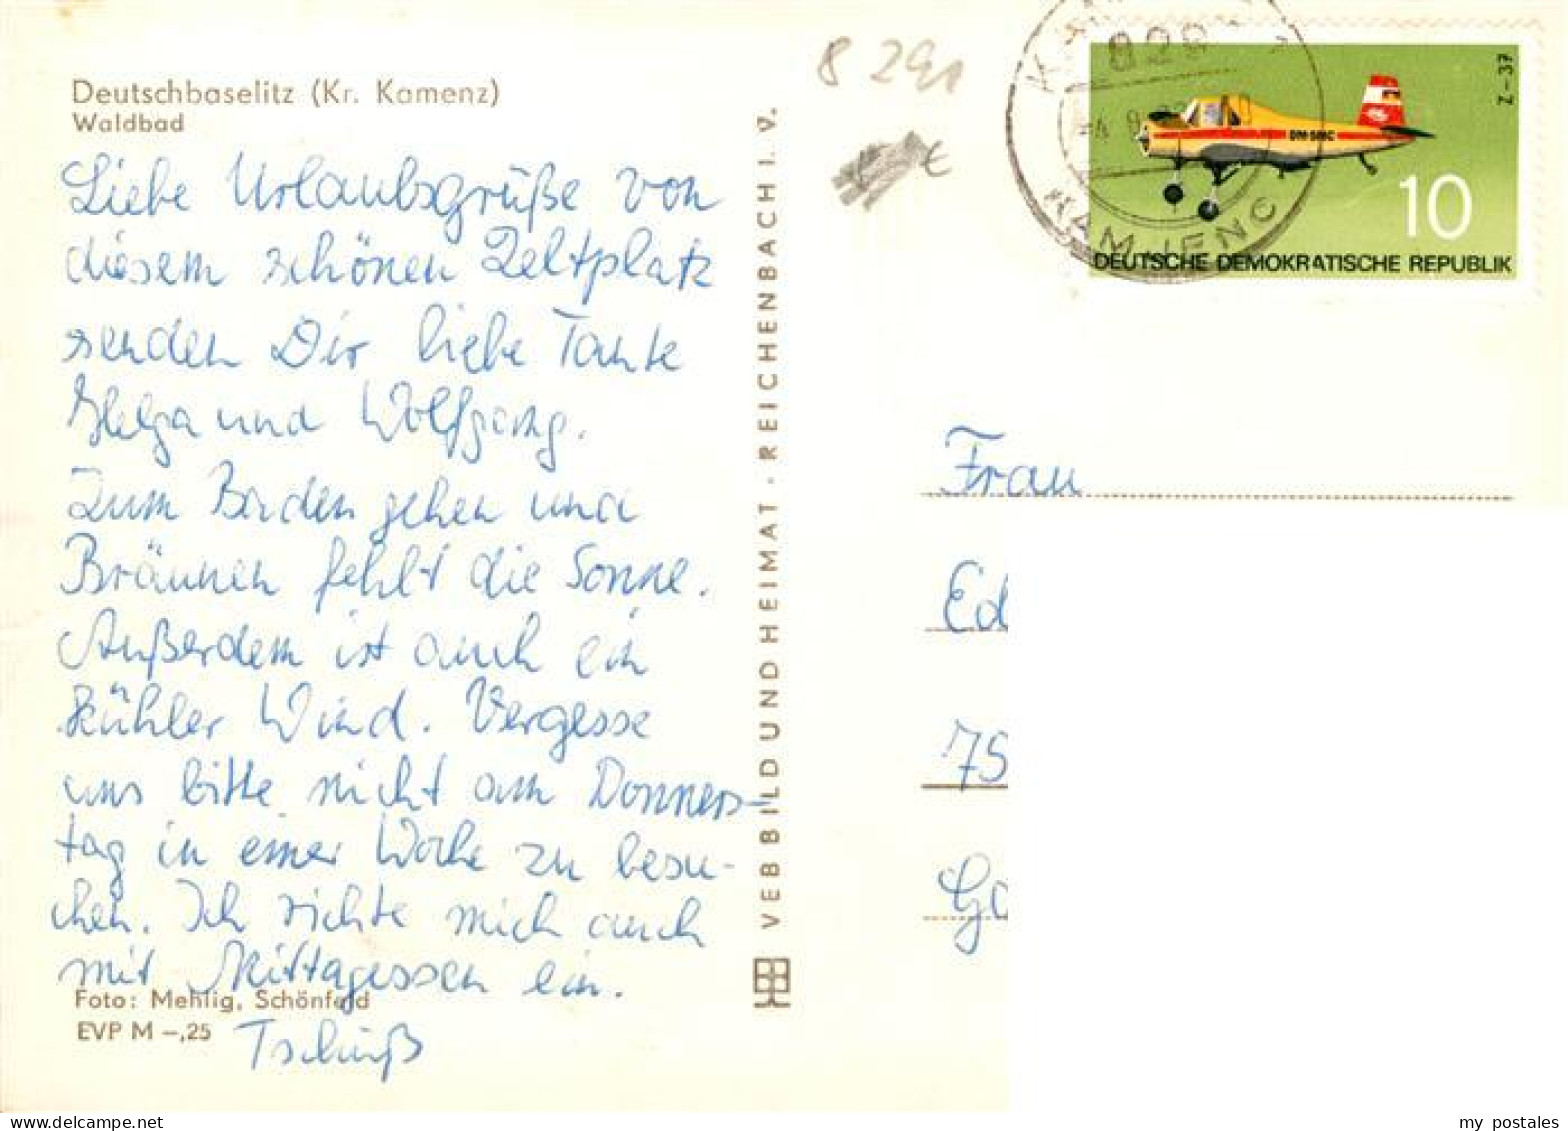 Deutschbaselitz (Kr. Kamenz)
Waldbad
Liebe Urlaubsgrüße von
diesem schönen Zeltplatz
senden Dir liebe Tante
Helga und Wolfgang.
Zum Baden gehen und
Bräunen fehlt die Sonne.
Außerdem ist auch ein
kühler Wind. Vergesse
uns bitte nicht am Donners-
tag in einer Woche zu besu-
chen. Ich richte mich auch
mit Mittagessen ein.
Tschüß
Foto: Mehlig, Schönfeld
EVP M –,25
VEB BILD UND HEIMAT · REICHENBACH I. V.
8291
€
829
KAMJENC
Z-37
DM-SMC
10
DEUTSCHE DEMOKRATISCHE REPUBLIK
Frau
Ed
75
Gö
my postales